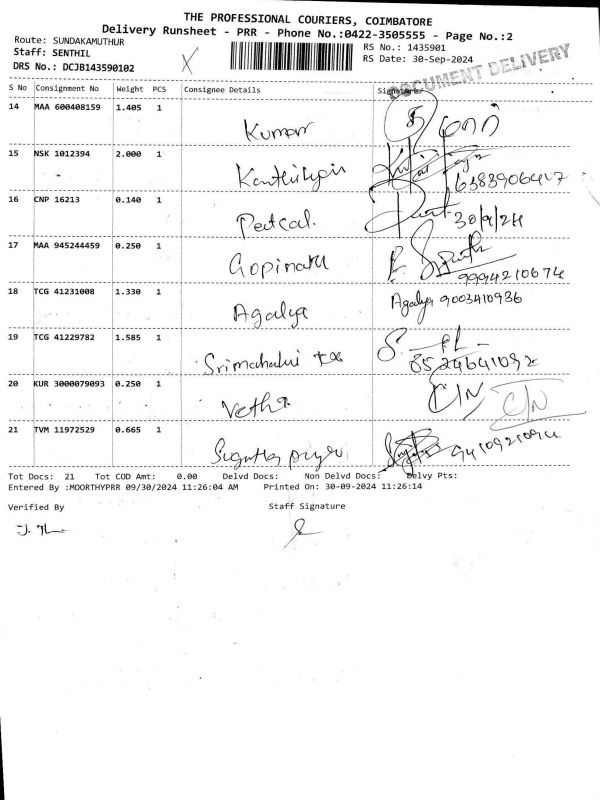 THE PROFESSIONAL COURIERS, COIMBATORE
Delivery Runsheet - PRR - Phone No.:0422-3505555 - Page No.:2
Route: SUNDAKAMUTHUR
Staff: SENTHIL
DRS No.: DCJB143590102
RS No.: 1435901
RS Date: 30-Sep-2024
DOCUMENT DELIVERY
S No Consignment No Weight PCS Consignee Details Signature
14 MAA 600408159 1.405 1 Kumar
15 NSK 1012394 2.000 1
16 CNP 16213 0.140 1 30/9/24
17 MAA 945244459 0.250 1 Gopinath 9994210674
18 TCG 41231008 1.330 1 Agalya Agalya 9003410936
19 TCG 41229782 1.585 1 8524641092
20 KUR 3000079093 0.250 1 Vetha C/N C/N
21 TVM 11972529 0.665 1
Tot Docs: 21 Tot COD Amt: 0.00 Delvd Docs: Non Delvd Docs: Delvy Pts:
Entered By :MOORTHYPRR 09/30/2024 11:26:04 AM Printed On: 30-09-2024 11:26:14
Verified By Staff Signature